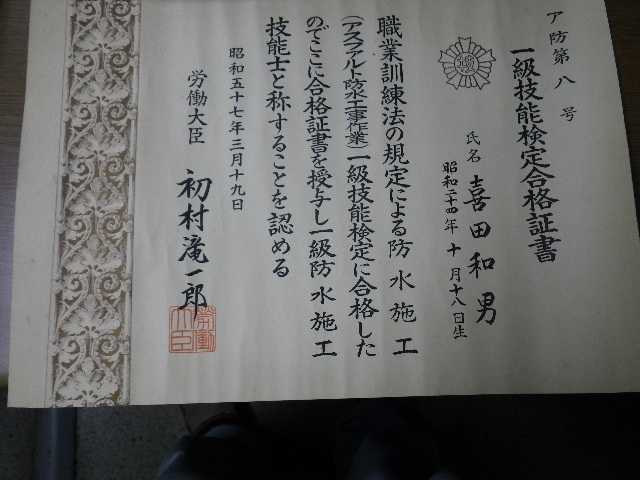 ア防第八号
一級技能検定合格証書
氏名 喜田和男
昭和二十四年十月十八日生
職業訓練法の規定による防水施工
(アスファルト防水工事作業)一級技能検定に合格した
のでここに合格証書を授与し一級防水施工
技能士と称することを認める
昭和五十七年三月十九日
労働大臣 初村滝一郎
労働大臣